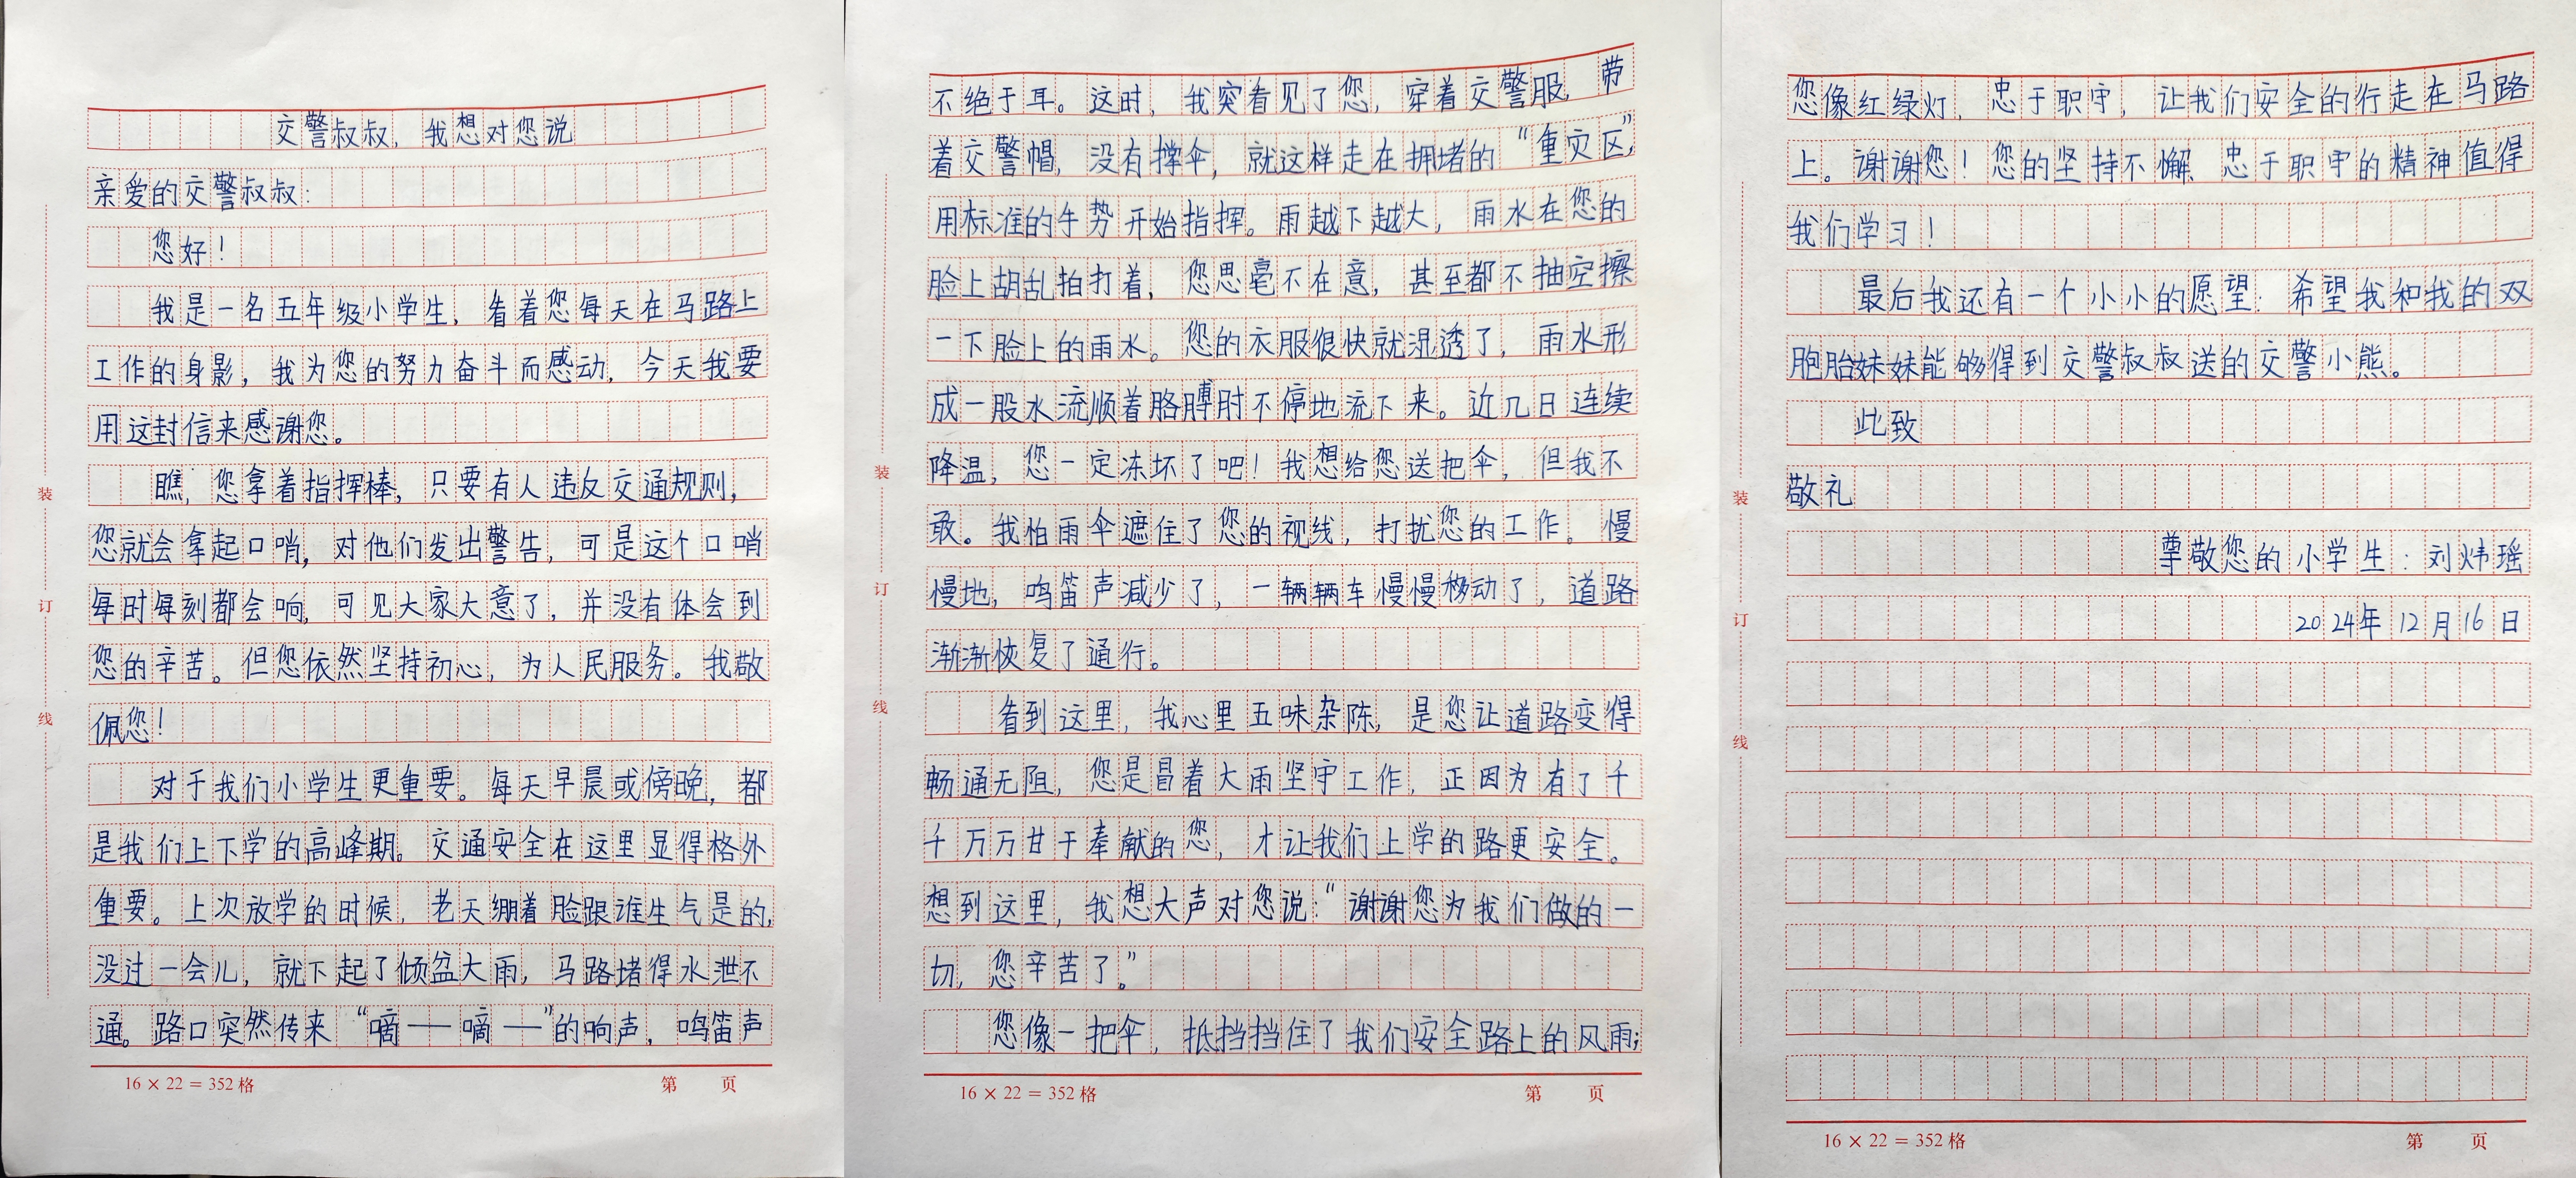 交警叔叔，我想对您说
亲爱的交警叔叔：
您好！
我是一名五年级小学生，看着您每天在马路上
工作的身影，我为您的努力奋斗而感动，今天我要
用这封信来感谢您。
瞧，您拿着指挥棒，只要有人违反交通规则，
您就会拿起口哨，对他们发出警告，可是这个口哨
每时每刻都会响，可见大家大意了，并没有体会到
您的辛苦。但您依然坚持初心，为人民服务。我敬
佩您！
对于我们小学生更重要。每天早晨或傍晚，都
是我们上下学的高峰期。交通安全在这里显得格外
重要。上次放学的时候，老天绷着脸跟谁生气是的，
没过一会儿，就下起了倾盆大雨，马路堵得水泄不
通。路口突然传来“嘀——嘀——”的响声，鸣笛声
16 × 22 = 352 格
第 页
装
订
线
不绝于耳。这时，我突看见了您，穿着交警服，带
着交警帽，没有撑伞，就这样走在拥堵的“重灾区”，
用标准的手势开始指挥。雨越下越大，雨水在您的
脸上胡乱拍打着，您思毫不在意，甚至都不抽空擦
一下脸上的雨水。您的衣服很快就湿透了，雨水形
成一股水流顺着胳膊肘不停地流下来。近几日连续
降温，您一定冻坏了吧！我想给您送把伞，但我不
敢。我怕雨伞遮住了您的视线，打扰您的工作。慢
慢地，鸣笛声减少了，一辆辆车慢慢移动了，道路
渐渐恢复了通行。
看到这里，我心里五味杂陈，是您让道路变得
畅通无阻，您是冒着大雨坚守工作，正因为有了千
千万万甘于奉献的您，才让我们上学的路更安全。
想到这里，我想大声对您说：“谢谢您为我们做的一
切，您辛苦了。”
您像一把伞，抵挡挡住了我们安全路上的风雨；
16 × 22 = 352 格
第 页
装
订
线
您像红绿灯，忠于职守，让我们安全的行走在马路
上。谢谢您！您的坚持不懈、忠于职守的精神值得
我们学习！
最后我还有一个小小的愿望：希望我和我的双
胞胎妹妹能够得到交警叔叔送的交警小熊。
此致
敬礼
尊敬您的小学生：刘炜瑶
2024年12月16日
16 × 22 = 352 格
第 页
装
订
线